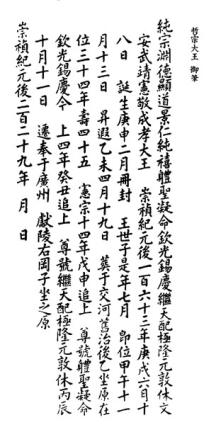 哲宗大王 御筆
純宗淵德顯道景仁純禧體聖凝命欽光錫慶繼天配極隆元敦休文
安武靖憲敬成孝大王 崇禎紀元後一百六十三年庚戌六月十
八日 誕生庚申二月冊封 王世子定年七月 卽位甲午十一
月十三日 昇遐乙未四月十九日 葬于交河舊治後乙坐原在
位三十四年壽四十五 憲宗十四年戊申追上 尊號體聖凝命
欽光錫慶今 上四年癸丑追上 尊號繼天配極隆元敦休丙辰
十月十一日 遷奉于廣州 獻陵右岡子坐之原
崇禎紀元後二百二十九年 月 日